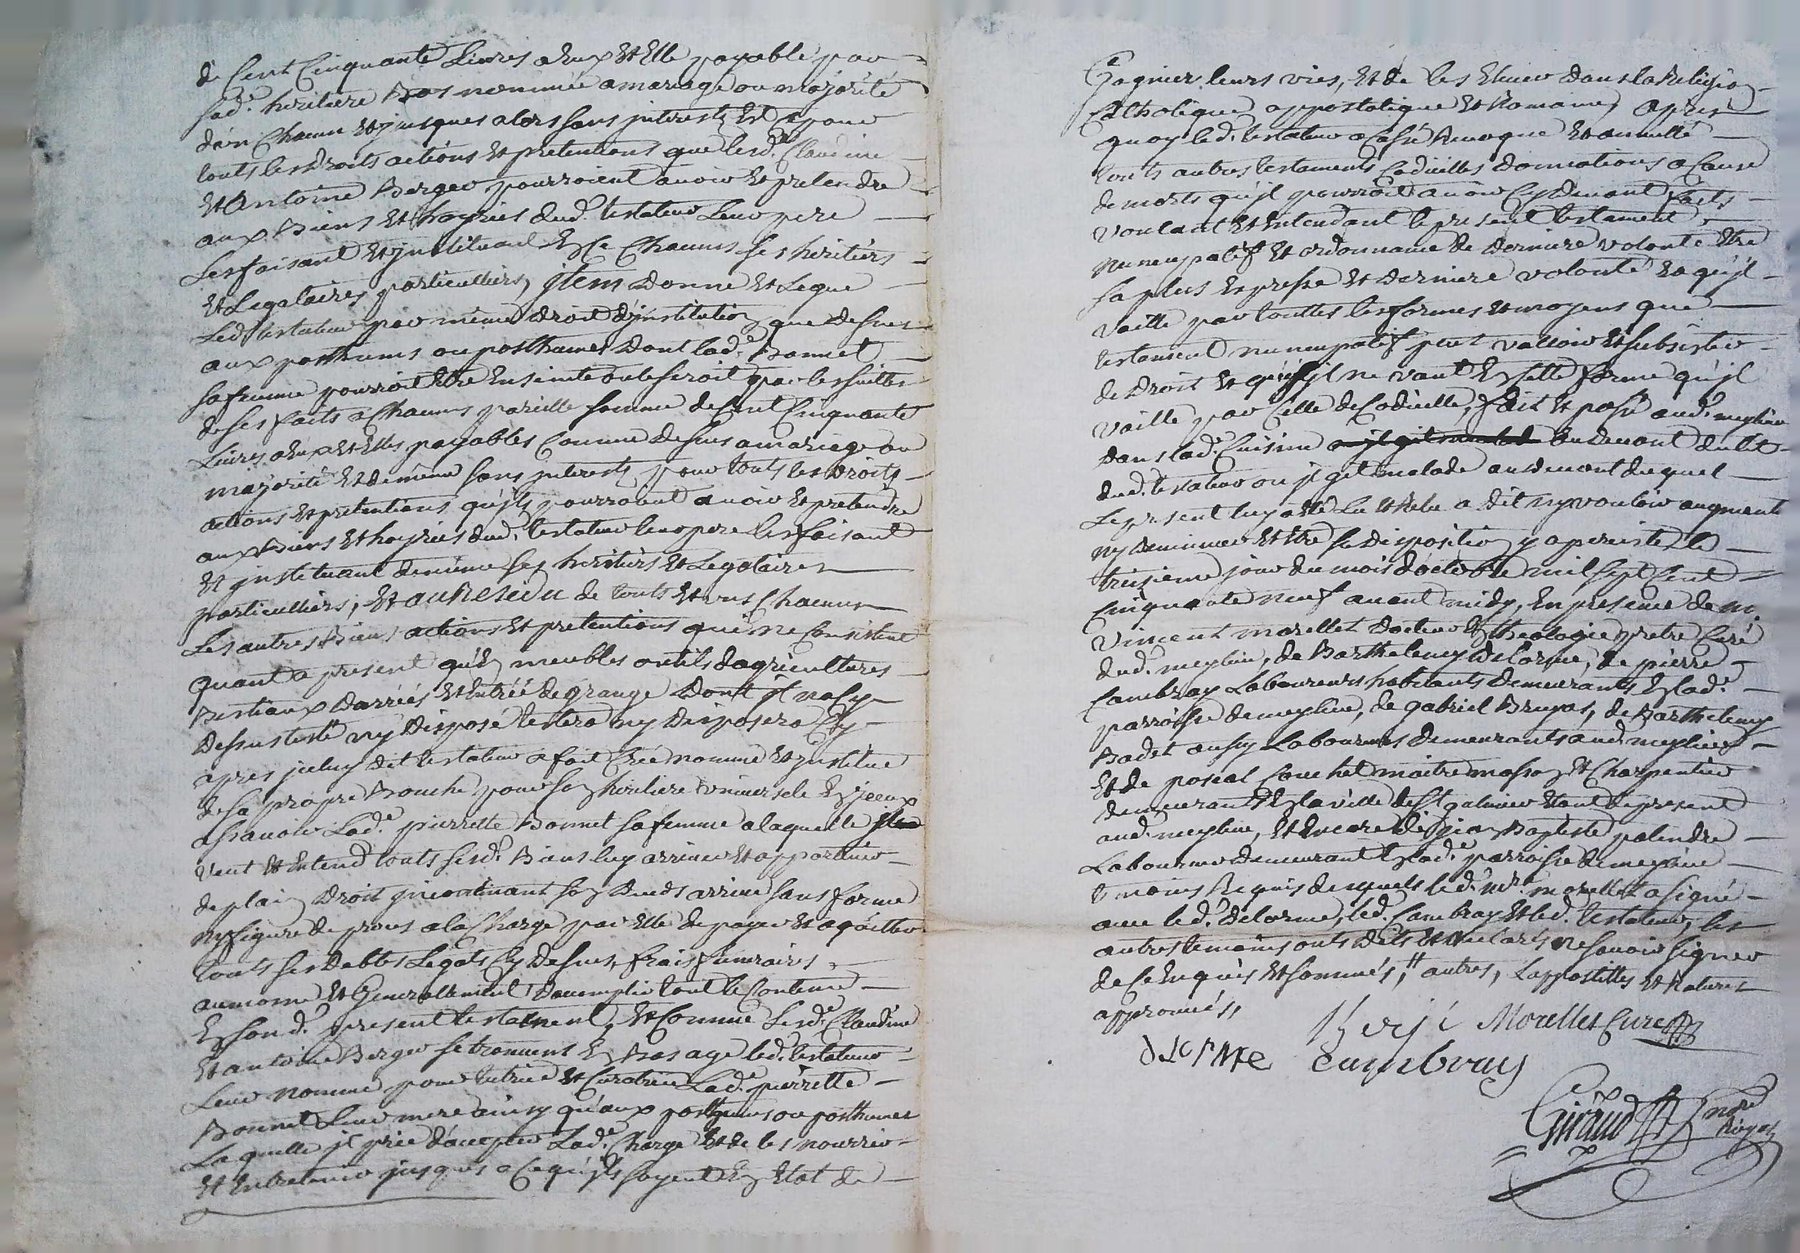 de Cent Cinquante Livres a Eux Et Elle payable par
sad.e heritiere Bas nommée a mariage ou majorité
d'un Chacun Et jusques alors sans jnterests Et C pour
touts les droits actions Et pretentions que lesd. Claudine
Et Antoine Berger pourroient avoir Et pretendre
aux Biens Et hoyries dud. testateur Leur pere
Les faisant Et jnstituant En Ce Chacuns ses heritiers
Et Legataires particulliers, jtem Donne Et Legue
Led. testateur par même droit d'jnstitution que dessus
aux posthumes ou posthumes dont lad.e Bonnet
sa femme pourroit Etre Enceinte ou le seroit par les suittes
de ses faits a Chacuns pareille somme de Cent Cinquante
Livres a Eux Et Elles payables Comme dessus a mariage ou
majorité Et de même sans jnterests pour touts les droits
actions Et pretentions qu'ils pourroient avoir Et pretendre
aux Biens Et hoyries dud. testateur leur pere les faisant
Et jnstituant de même ses heritiers Et Legataires
particulliers, Et au Residu de touts Et uns Chacuns
Les autres Biens actions Et pretentions qui ne Consistent
quant a present qu'En meubles outils d'agricultures
Bestiaux d'arriés Et Entrée de grange dont jl n'a Cy
dessus testé ny disposé testera ny disposera Cy
apres jceluy dit testateur a fait Créé nommé Et jnstitué
de sa propre Bouche pour son heritiere universele En jceux
a sçavoir Lad.e pierrette Bonnet sa femme a laquelle
veut Et Entend touts sesd. Biens luy arriver Et appartenir
de plain droit jncontinant son deceds arrivé sans forme
ny figure de procés a la Charge par Elle de payer Et acquitter
touts ses debtes Legats Cy dessus, frais funeraires
aumone Et Generallement d'accomplir tout le Contenu
En son d. present testament, Et Comme Lesd. Claudine
Et antoine Berger se trouvent En Bas age led. testateur
Leur nomme pour tutrice Et Curatrice Lad.e pierrette
Bonnet Leur mere ainsy qu'aux posthumes ou posthumes
Laquelle jl prie d'accepter Lad.e Charge Et de les nourrir
Et Entretenir jusques a Ce qu'ils soyent En Etat de
Gagner leurs vies, Et de les Elever dans la Religion
Catholique appostolique Et Romaine, apres
quoy led. testateur a Cassé Revoqué Et annullé
touts autres testaments Codicilles donnations a Cause
de morts qu'jl pourroit avoir Cy devant faits
voulant Et Entendant le present testament
nuncupatif Et ordonnance de derniere volonté Etre
sa plus Expresse Et derniere volonté Et qu'jl
vaille par touttes les formes Et moyens que
testament nuncupatif peut valloir Et subsister
de droit Et que s'jl ne vaut En cette forme qu'jl
vaille par Celle de Codicille, fait Et passé aud. meylieu
dans lad.e Cuisine au devant du lit
dud. testateur ou jl git malade au devant duquel
Le present luy a Eté Lu Et Relu a dit n'y vouloir augmenter
ny diminuer Et Etre sa disposition y a persisté le
troisieme jour du mois d'octobre mil sept Cent
Cinquante neuf avant midy, En presence de m.
Vincent morellet docteur En theologie pretre Curé
dud. meylieu, de Barthelemy delorme, de pierre
Cambray Laboureurs habitants demeurants En lad.e
parroisse de meylieu, de gabriel Bruyas, de Barthelemy
Badet aussy Laboureurs demeurants aud. meylieu
Et de pascal Couchet maitre masson Et Charpentier
demeurant En la ville de St galmier Etant de present
aud. meylieu, Et Encore de jean Baptiste palendre
Laboureur demeurant En lad.e parroisse de meylieu
temoins Requis desquels led. mr. morellet a signé
avec led. delorme, led. Cambray Et led. testateur, les
autres temoins onts dits Et declarés ne sçavoir signer
de Ce Enquis Et sommés, # autres, L'appostilles Et Ratures
approuvés,
Berje Morellet Curé
delorme Cambray
Giraud nore
Royal